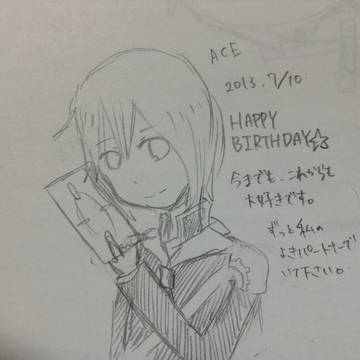 ACE
2013.7/10
HAPPY
BIRTHDAY☆
今までも、これからも
大好きです。
ずっと私の
よきパートナーで
いて下さい。